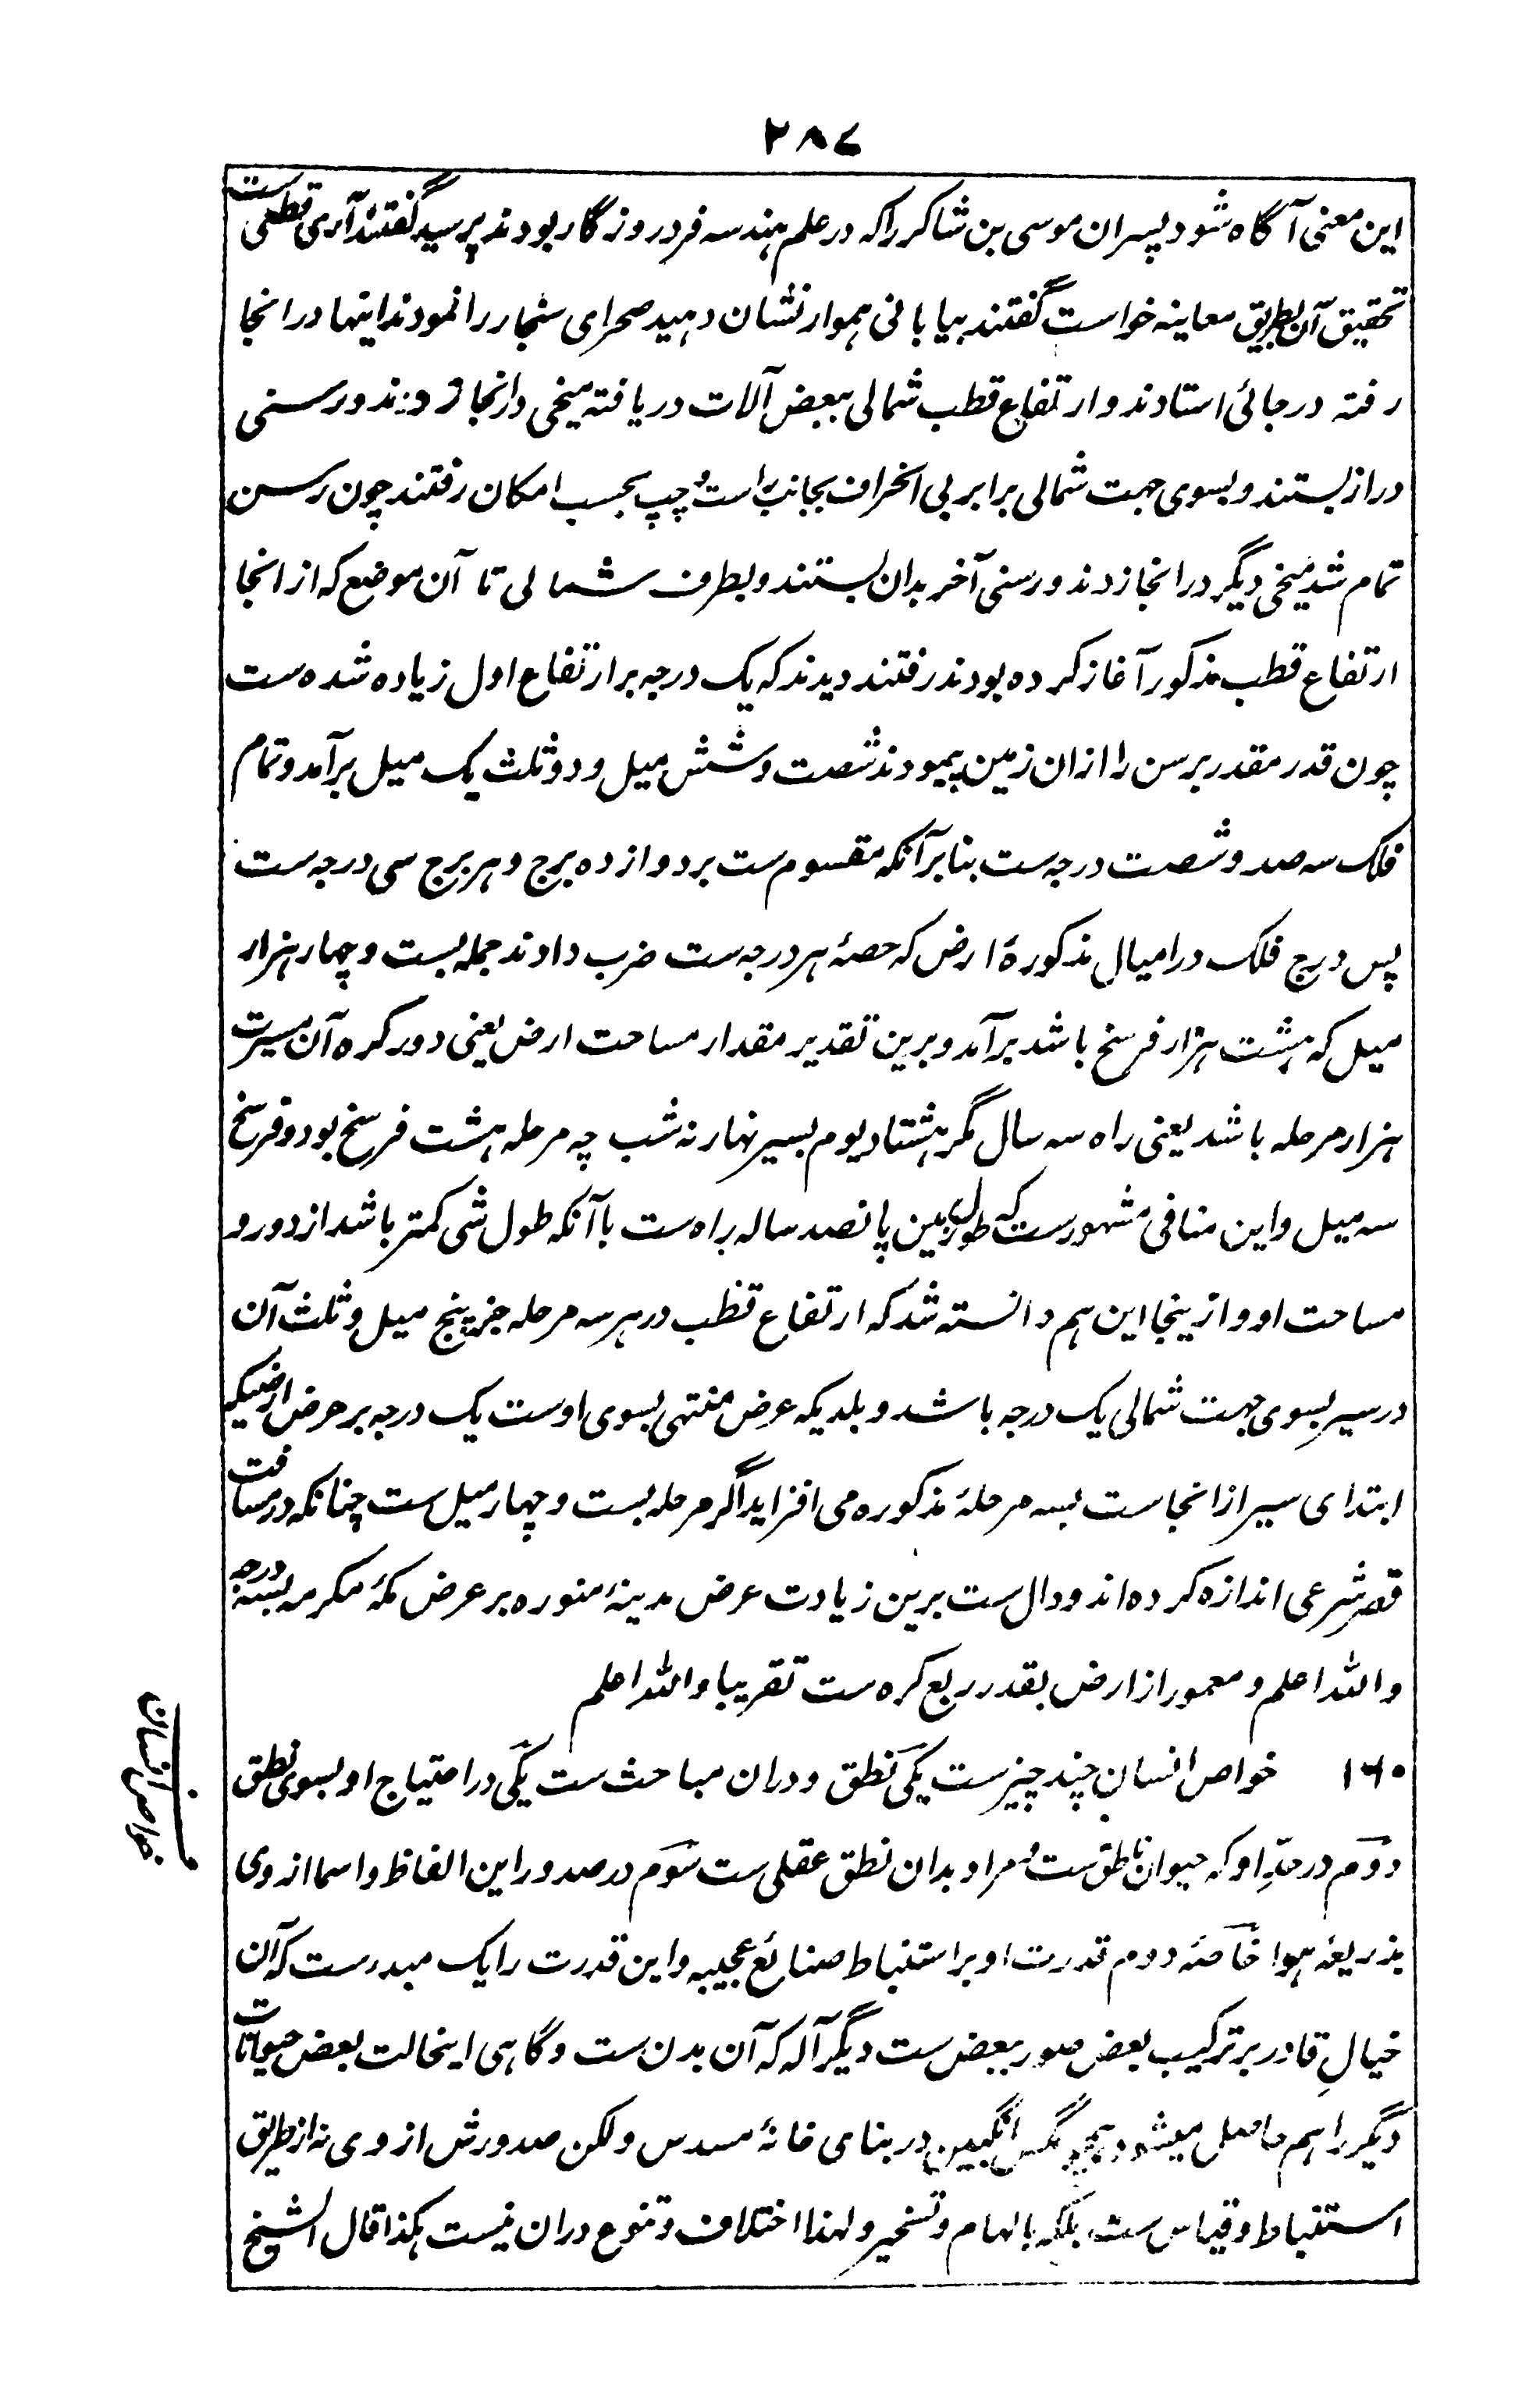 ۲۸۷
این معنی آگاه شود پسران موسی بن شاکر را که در علم هندسه فرد روزگار بودند پرسید گفتند آری قطعی ست
تحقیق آن بطریق معاینه خواست گفتند بیابانی هموار نشان دهید صحرای سنجار را نمودند اینها در انجا
رفته در جائی استادند و ارتفاع قطب شمالی ببعض آلات دریافته میخی در انجا زدند و رسنی
دراز بستند و بسوی جهت شمالی برابر بی انحراف بجانب راست و چپ بحسب امکان رفتند چون رسن
تمام شد میخی دیگر در انجا زدند و رسنی آخر بدان بستند و بطرف شمالی تا آن موضع که از انجا
ارتفاع قطب مذکور آغاز کرده بودند رفتند دیدند که یک درجه بر ارتفاع اول زیاده شده ست
چون قدر مقدر برسن را ازان زمین پیمودند شصت و شش میل و دو ثلث یک میل برآمد و تمام
فلک سه صد و شصت درجه ست بنا بر آنکه مقسوم ست بر دوازده برج و هر برج سی درجه ست
پس درج فلک در امیال مذکورهٔ ارض که حصهٔ هر درجه ست ضرب دادند جمله بست و چهار هزار
میل که هشت هزار فرسخ باشد برآمد و برین تقدیر مقدار مساحت ارض یعنی دور کره آن مسیرت
هزار مرحله باشد یعنی راه سه سال مگر هشتاد یوم بسیر نهار نه شب چه مرحله هشت فرسخ بود و فرسخ
سه میل و این منافی مشهورست که طول زمین پانصد ساله راه ست با آنکه طول شی کمتر باشد از دور و
مساحت او و از ینجا این هم دانسته شد که ارتفاع قطب در هر سه مرحله جز پنج میل و ثلث آن
در سیر بسوی جهت شمالی یک درجه باشد و بلدیکه عرض منتهی بسوی اوست یک درجه بر عرض ارضیکه
ابتدای سیر ازانجاست بسه مرحلهٔ مذکوره می افزاید اگر مرحله بست و چهار میل ست چنانکه در مسافت
قصر شرعی اندازه کرده اند و دال ست برین زیادت عرض مدینهٔ منوره بر عرض مکهٔ مکرمه بسه درجه
والله اعلم و معمور از ارض بقدر ربع کره ست تقریبا والله اعلم
۱۶۰ خواص انسان چند چیزست یکی نطق و دران مباحث ست یکی در احتیاج او بسوی نطق
خواص انسان
دوم در حدِّ او که حیوان ناطق ست و مراد بدان نطق عقلی ست سوم در صدور این الفاظ و اسما از وی
بذریعهٔ هوا خاصهٔ دوم قدرت او بر استنباط صنائع عجیبه و این قدرت را یک مبدرست که آن
خیالِ قادر بر ترکیب بعض صور ببعض ست دیگر آله که آن بدن ست و گاهی اینحالت بعض حیوانات
دیگر را هم حاصل میشود همچو مگس انگبین در بنای خانهٔ مسدس ولکن صدورش از وی نه از طریق
استنباط و قیاس ست بلکه بالهام و تسخیر و لهذا اختلاف و تنوع دران نیست هکذا قال الشیخ